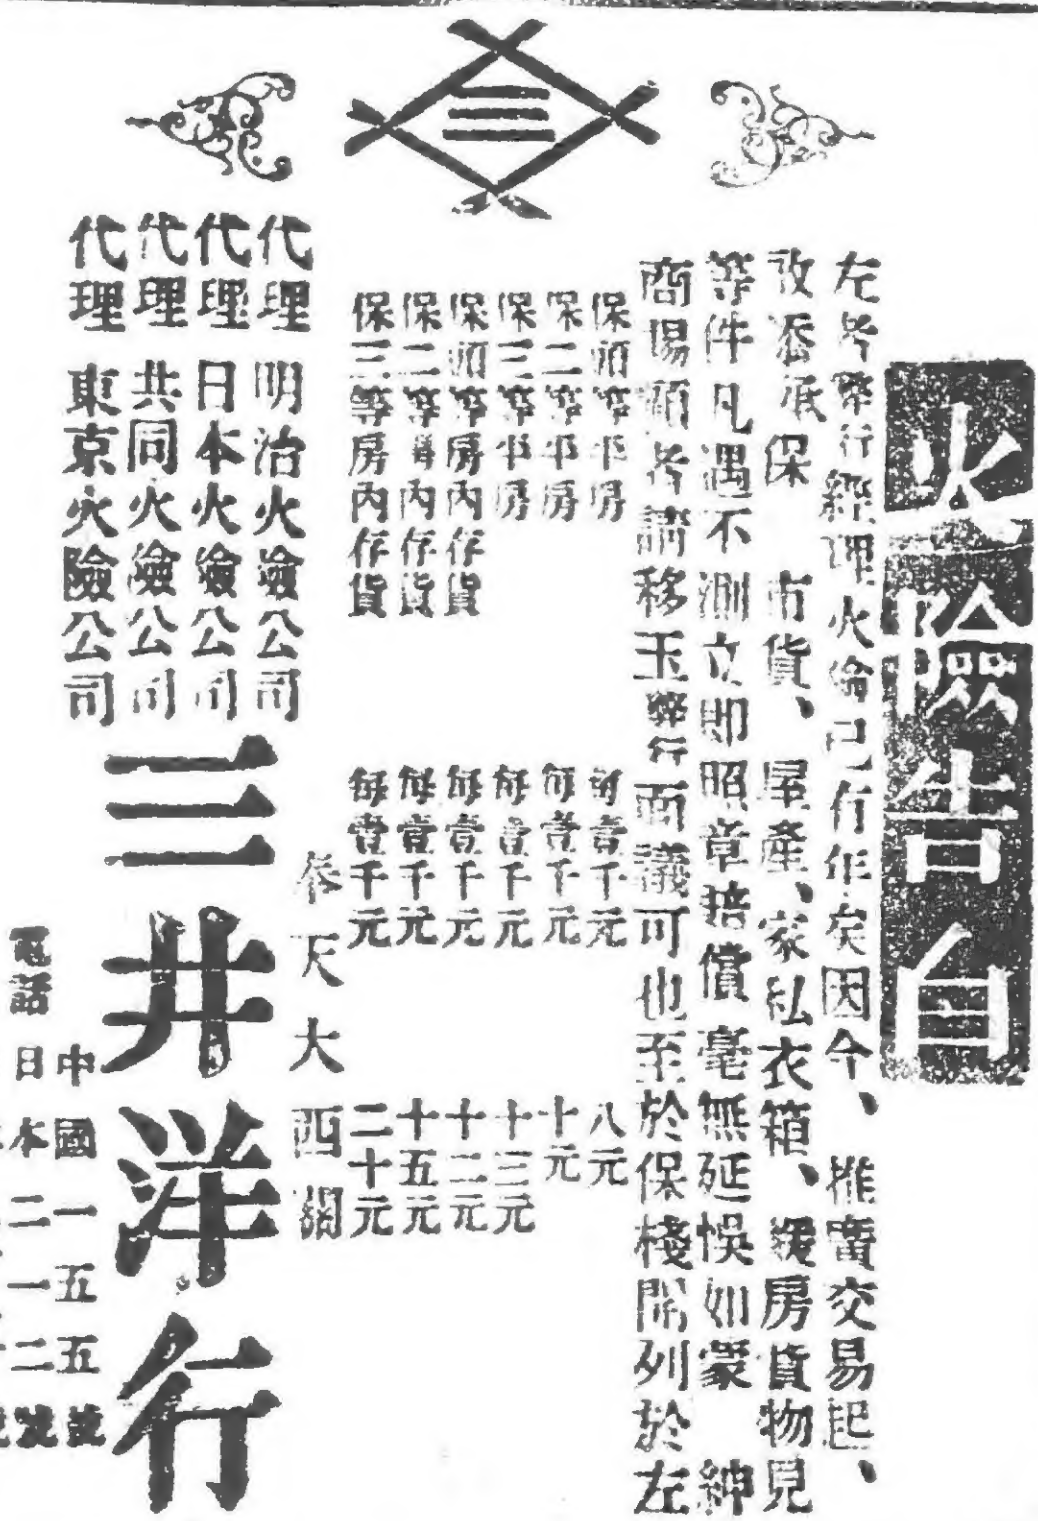 火險告白
左者弊行經理火險已有年矣因今、推廣交易起、
改添承保 市貨、屋產、家私衣箱、緩房貨物見
等件凡遇不測立即照章培償毫無延悞如蒙 紳
商賜顧者請移玉弊行面議可也至於保棧開列於左
保頭等半房 每壹千元 八元
保二等半房 每壹千元 十元
保三等半房 每壹千元 十三元
保頭等房內存貨 每壹千元 十二元
保二等房內存貨 每壹千元 十五元
保三等房內存貨 每壹千元 二十元
奉天大西關
代理 明治火險公司
代理 日本火險公司
代理 共同火險公司
代理 東京火險公司
三井洋行
電話 中國一五五號
日本二一二號